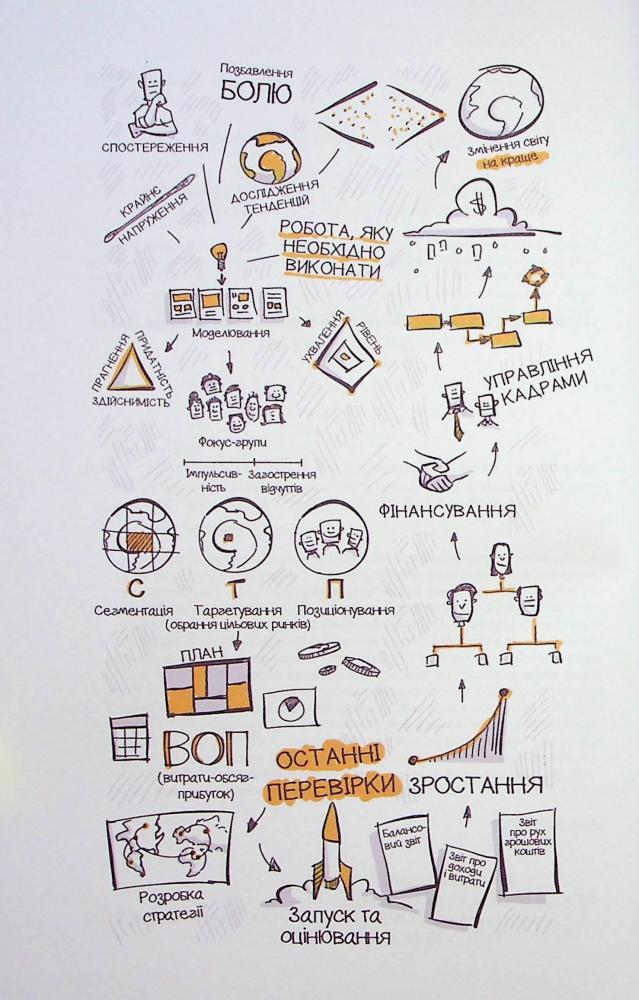 СПОСТЕРЕЖЕННЯ
Позбавлення
БОЛЮ
Змінення світу
на краще
КРАЙНЄ
НАПРУЖЕННЯ
ДОСЛІДЖЕННЯ
ТЕНДЕНЦІЙ
РОБОТА, ЯКУ
НЕОБХІДНО
ВИКОНАТИ
$
Моделювання
ПРАГНЕННЯ
ПРИДАТНІСТЬ
ЗДІЙСНИМІСТЬ
УХВАЛЕННЯ
РІВЕНЬ
УПРАВЛІННЯ
КАДРАМИ
Фокус-групи
Імпульсив-
ність
Загострення
відчуттів
ФІНАНСУВАННЯ
С
Т
П
Сегментація
Таргетування
Позиціонування
(обрання цільових ринків)
ПЛАН
ВОП
(витрати-обсяг-
прибуток)
ОСТАННІ
ПЕРЕВІРКИ
ЗРОСТАННЯ
Розробка
стратегії
Запуск та
оцінювання
Балансо-
вий звіт
Звіт про
доходи
і витрати
Звіт
про рух
грошових
коштів